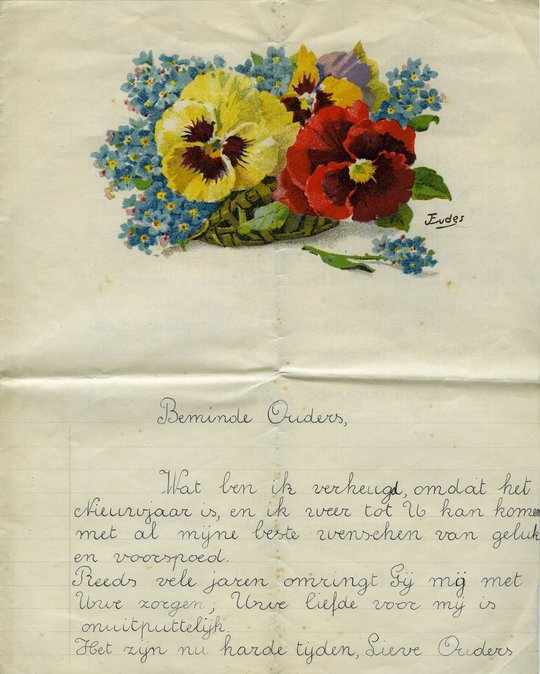 JEudes
Beminde Ouders,
Wat ben ik verheugd, omdat het
Nieuwjaar is, en ik weer tot U kan komen
met al mijne beste wenschen van geluk
en voorspoed.
Reeds vele jaren omringt Gij mij met
Uwe zorgen; Uwe liefde voor mij is
onuitputtelijk.
Het zijn nu harde tijden, Lieve Ouders